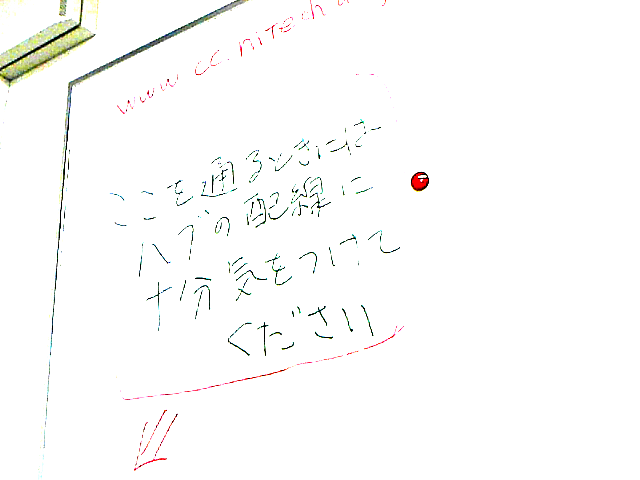 www.cc.nitech
ここを通るときには
ハブの配線に
十分気をつけて
ください